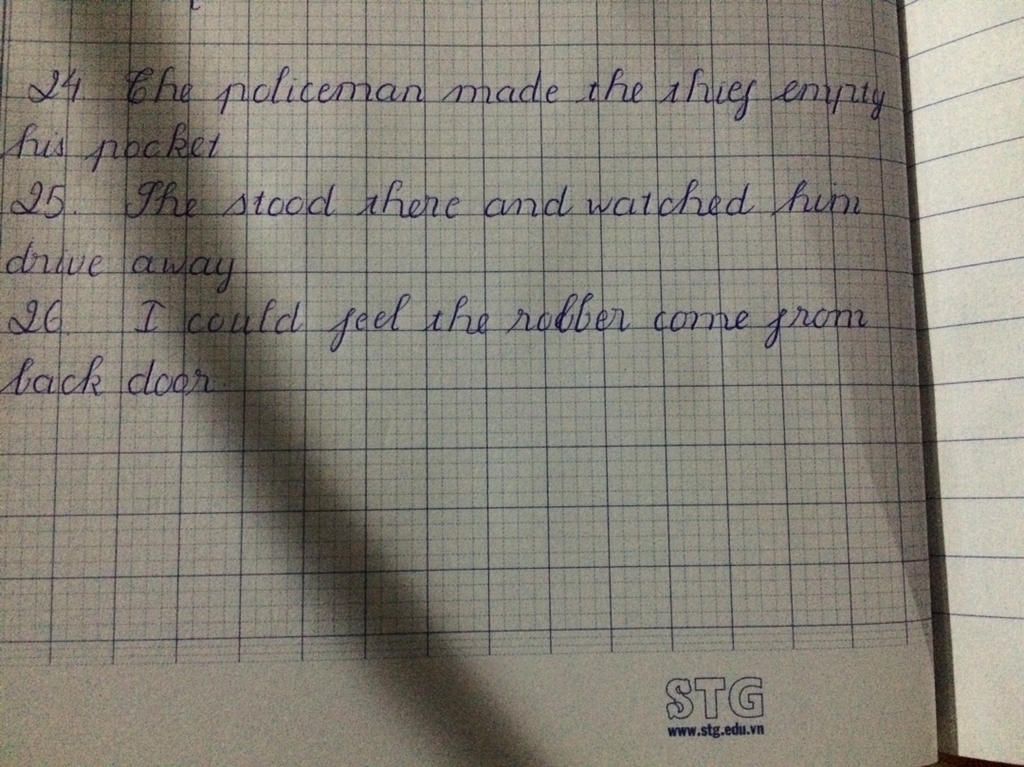 24. The policeman made the thief empty
his pocket
25. She stood there and watched him
drive away
26. I could feel the robber come from
back door.
STG
www.stg.edu.vn